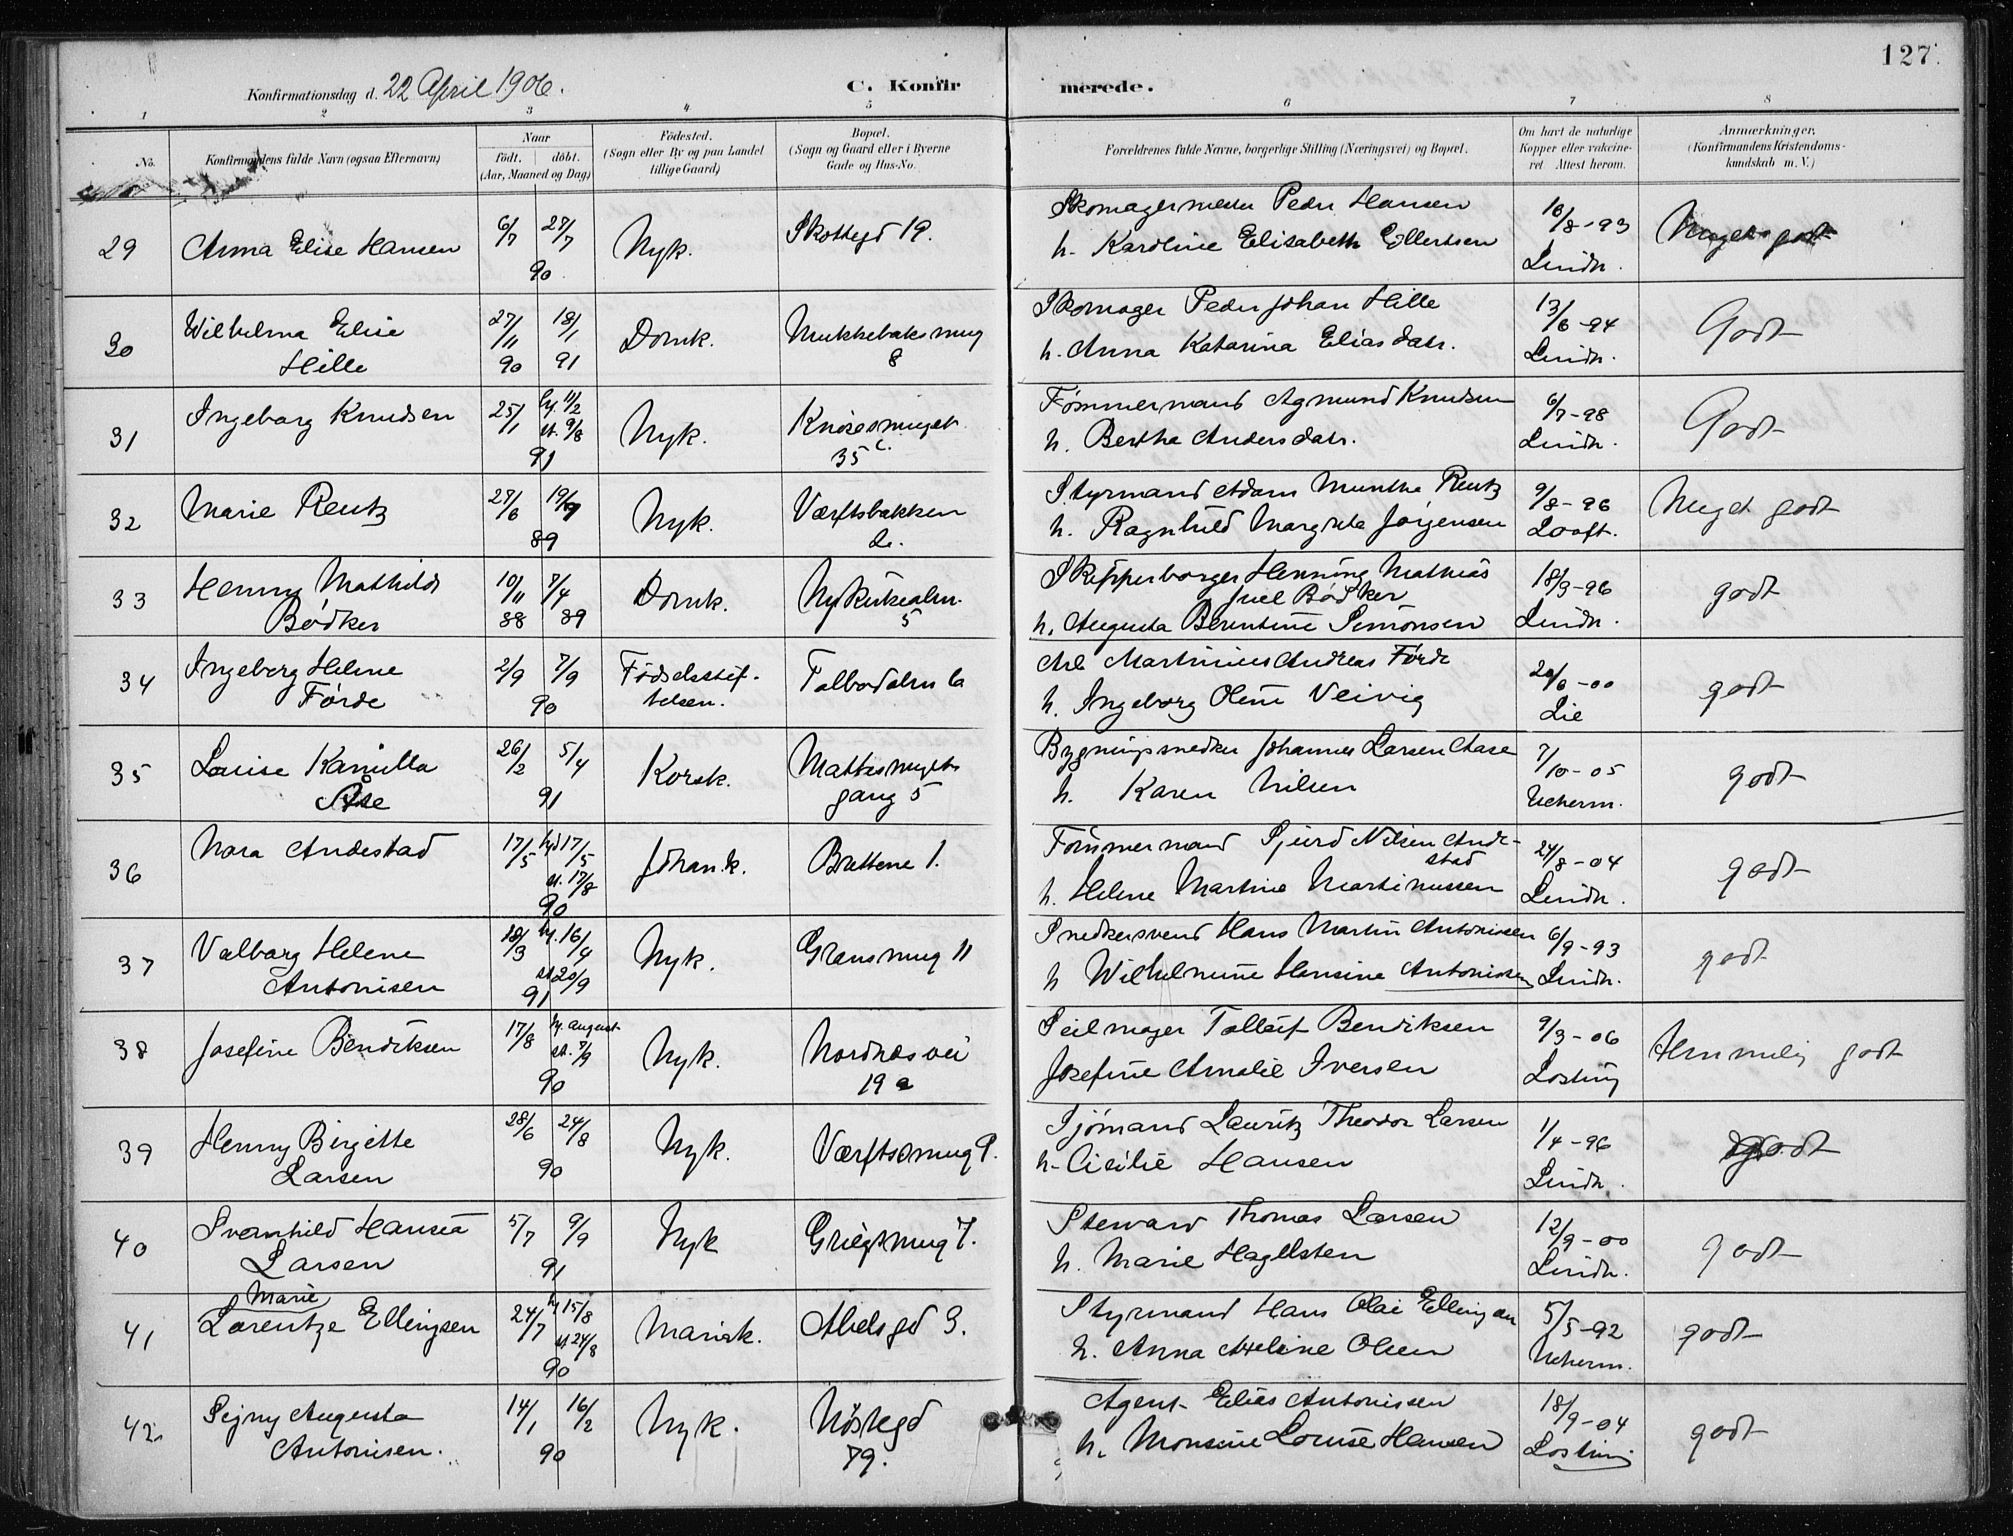 127.
Konfirmationsdag d. 22 April 1906.
C. Konfirmerede.
1 2 3 4 5 6 7 8
No.
Konfirmandens fulde Navn (ogsaa Efternavn)
Naar
født. | døbt.
(Aar, Maaned og Dag)
Fødested.
(Sogn eller By og paa Landet
tillige Gaard)
Bopæl.
(Sogn og Gaard eller i Byerne
Gade og Hus-No.
Forældrenes fulde Navne, borgerlige Stilling (Næringsvei) og Bopæl.
Om havt de naturlige
Kopper eller vakcine-
ret Attest herom.
Anmærkninger,
(Konfirmandens Kristendoms-
kundskab m. V.)
29 Anna Elise Hansen 6/7 27/7 90 Nyk. Skottegd 19.
Skomagermester Peder Hansen
h. Karoline Elisabeth Ellertsen
16/8-93 Lindh. Meget godt
30 Wilhelma Elise
Hille
27/11 90 18/1 91 Domk. Munkebaksmug
8
Skomager Peder Johan Hille
h. Anna Katarina Eliasdatr.
13/6-94 Lindh. Godt
31 Ingeborg Knudsen 25/1 hj. 11/2 st. 9/8 91 Nyk. Knøsesmuget
35 c.
Tømmermand Agmund Knudsen
h. Bertha Andersdatr.
6/7-98 Lindh. Godt
32 Marie Rentz 27/6 19/9 89 Nyk. Værftsbakken
2c.
Styrmand Adam Munthe Rentz
h. Ragnhild Margrete Jørgensen
9/8-96 Looft. Meget godt
33 Henny Mathilde
Bødker
10/11 88 7/4 89 Domk. Nykirkealm.
5
Skipperborger Henning Mathias
Juel Bødker
h. Augusta Berentine Simonsen
18/9-96 Lindh. godt
34 Ingeborg Helene
Førde
2/9 7/9 90 Fødselsstif-
telsen.
Tolbodalm 6a
Arb Martinius Andreas Førde
h. Ingeborg Oline Veivig
20/6-00 Lie godt
35 Louise Kamilla
Åse
26/2 5/4 91 Korsk. Mattismugets
gang 5
Bygningssnedker Johannes Larsen Aase
h. Karen Nilsen
7/10-05 Ucherm. godt
36 Nora Andestad 17/5 hjd 17/5 st. 17/8 90 Johan.k. Brattene 1.
Tømmermand Sjurd Nilsen Ande-
stad
h. Helene Martine Martinussen
24/8-04 Lindh. godt
37 Valborg Helene
Antonisen
18/3 hj. 16/4 st 20/9 91 Nyk. Gransmug 11
Snedkersvend Hans Martin Antonisen
h Wilhelmine Hansine Antonisen
6/9-93 Lindh. godt
38 Josefine Bendiksen 17/8 hj. august st. 7/9 90 Nyk. Nordnæsvei
19 a
Seilmager Tolleif Bendiksen
Josefine Amalie Iversen
9/3-06 Losting Temmelig godt
39 Henny Birgitte
Larsen
28/6 24/8 90 Nyk. Værftsmug 9.
Sjømand Lauritz Theodor Larsen
h. Cisilie Hansen
1/4-96 Lindh. godt
40 Svernhild Hansea
Larsen
5/7 9/9 91 Nyk Griegsmug 7.
Steward Thomas Larsen
h. Marie Hagelsten
12/9-00 Lindh. godt
41 Marie
Lorentze Ellingsen
24/7 hj 15/8 st 24/8 90 Mariæk. Abelsgd 3.
Styrmand Hans Olai Ellingsen
h. Anna Axeline Olsen
5/5-92 Ucherm. godt
42 Signy Augusta
Antonisen.
14/1 16/2 90 Nyk. Nøstegd
79.
Agent Elias Antonissen
h. Monsine Lovise Hansen
18/9-04 Losting godt